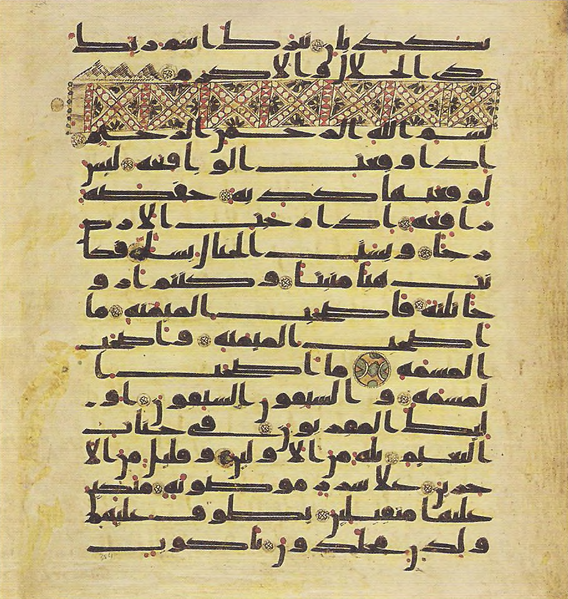 تكذبان تبرك اسم ربك
ذي الجلل والاكرم
بسم الله الرحمن الرحيم
اذا وقعت الواقعة ليس
لوقعتها كذبة خفضة
رافعة اذا رجت الارض
رجا وبست الجبال بسا فكا
نت هبا منبثا وكنتم ازو
جا ثلثة فاصحب الميمنة ما
اصحب الميمنة واصحب
المشمة ما اصحب ا
لمشمة والسبقون السبقون او
ليك المقربون في جنات
النعيم ثلة من الاولين وقليل من الا
خرين على سرر موضونة متكين
عليها متقبلين يطوف عليهم
ولدن مخلدون باكوب